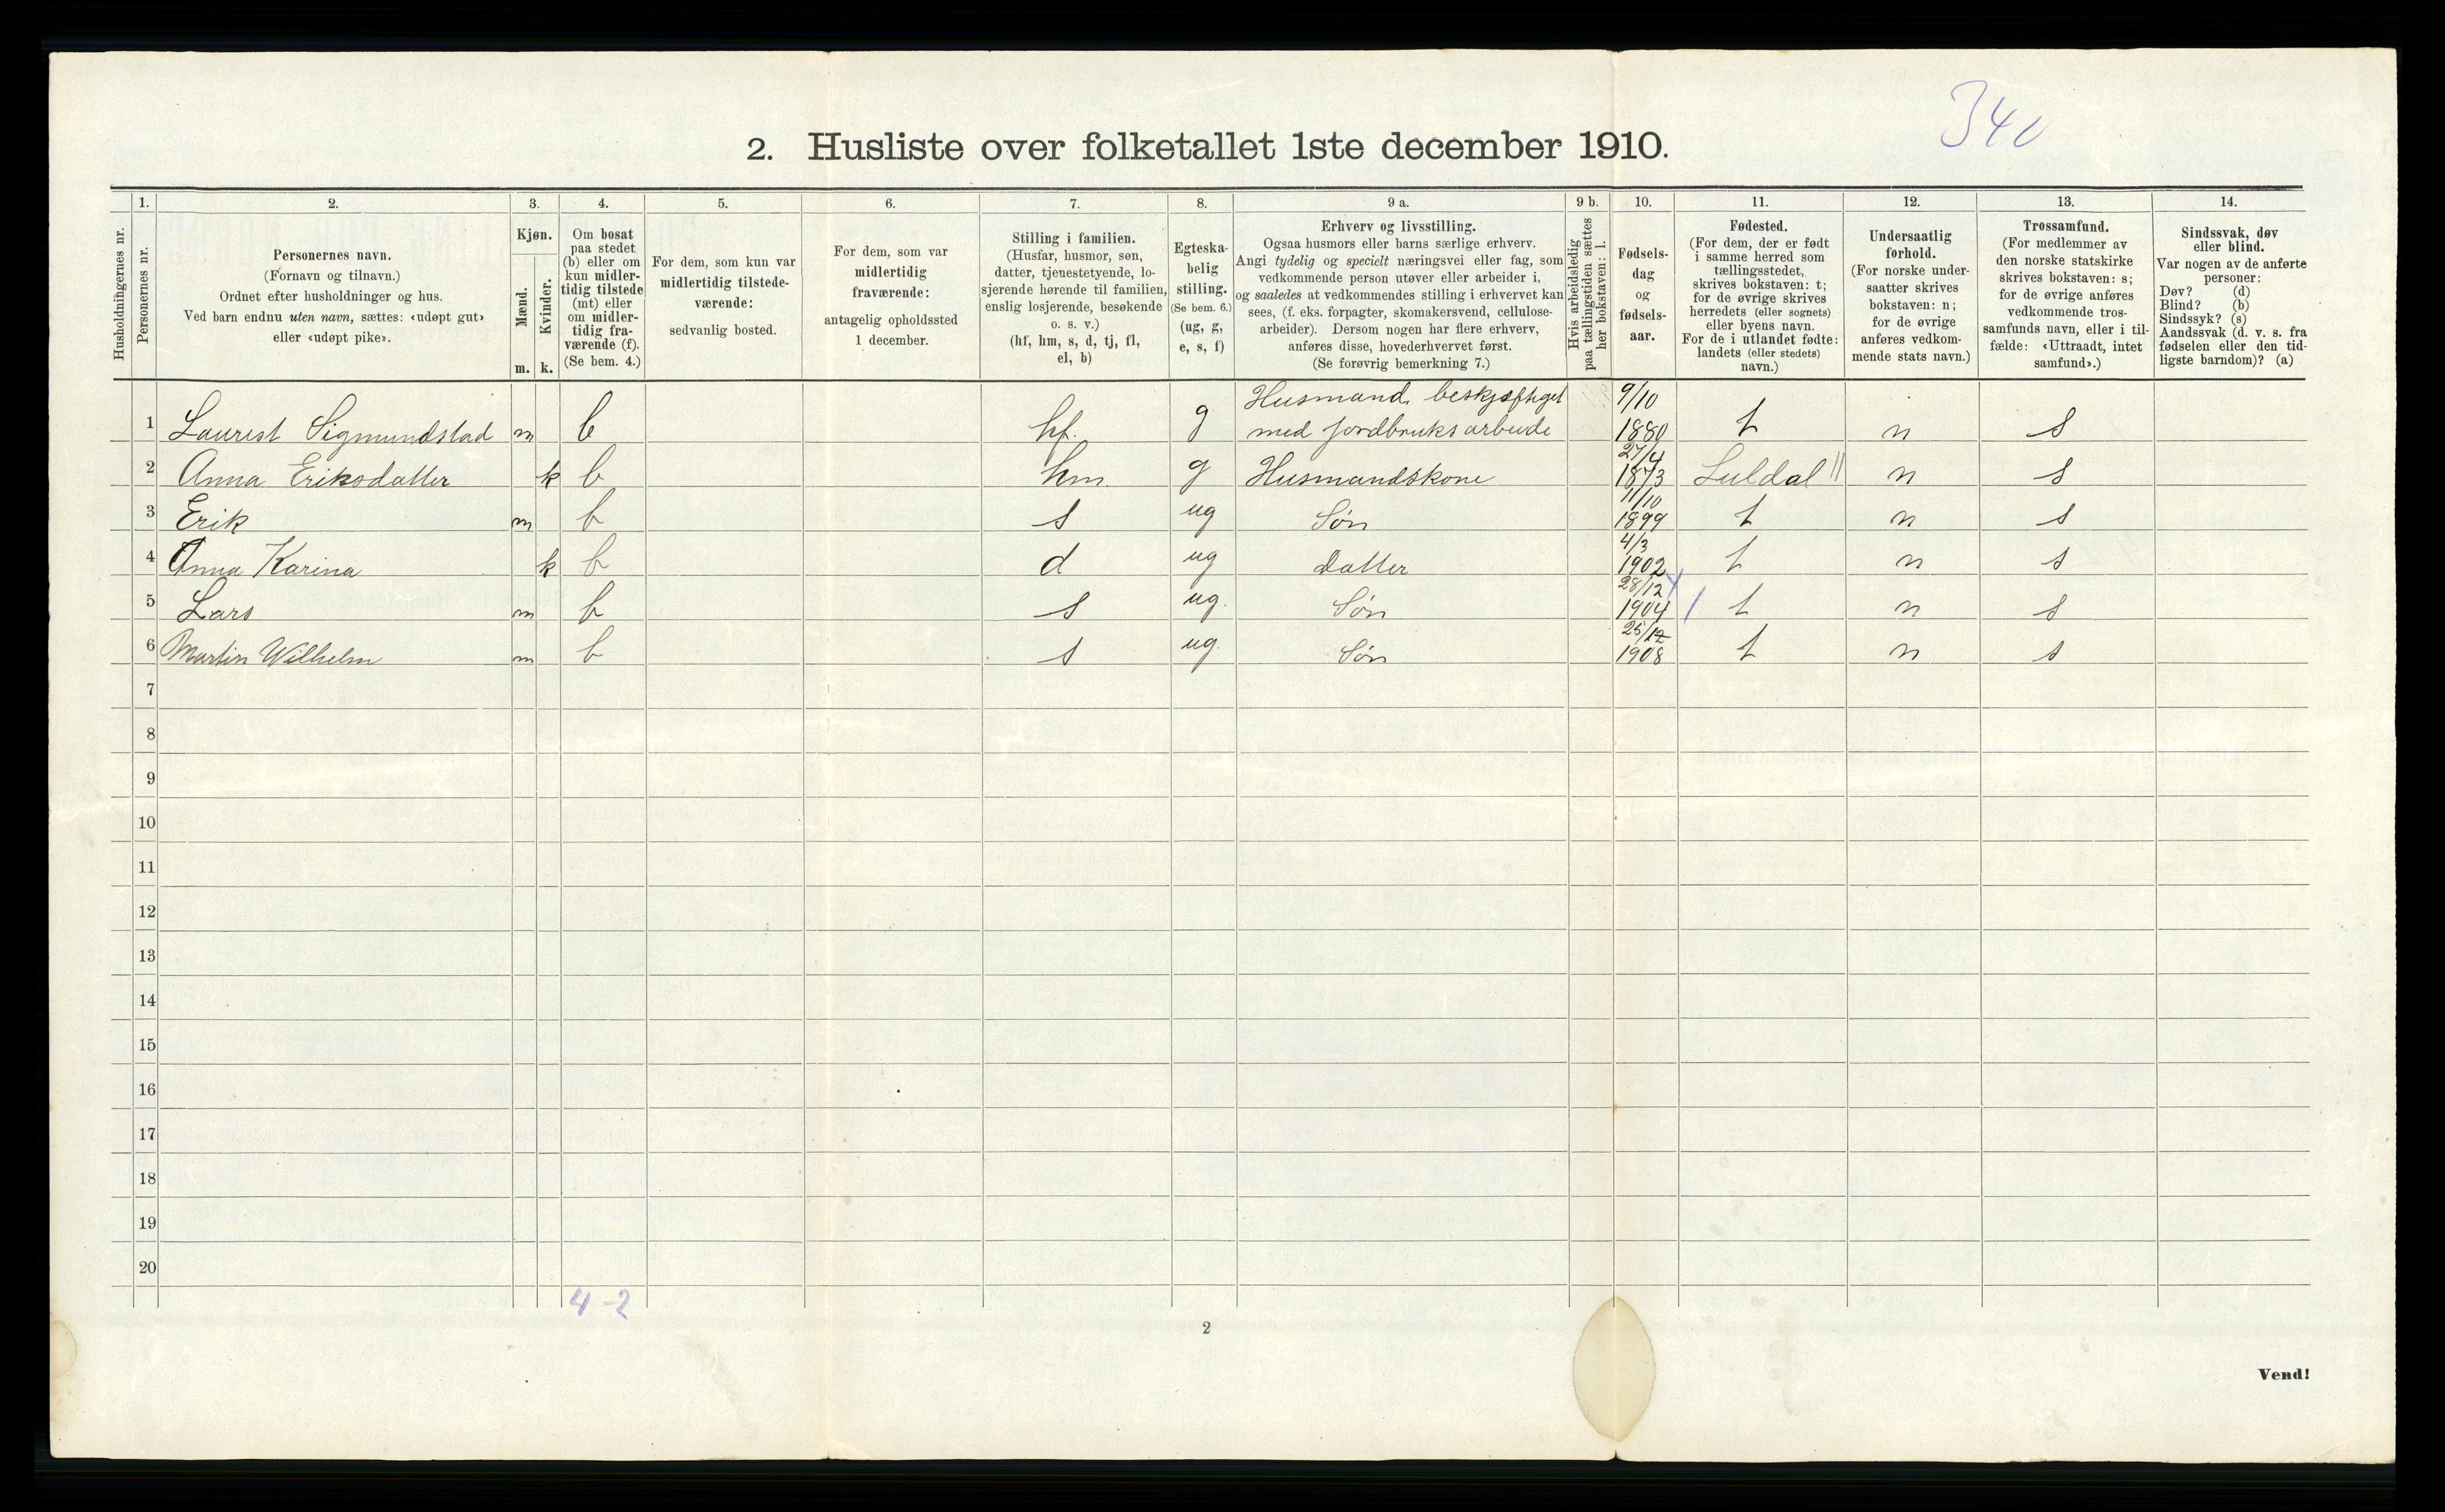 340
2. Husliste over folketallet 1ste december 1910.
Husholdningernes nr.
1.
Personernes nr.
2.
Personernes navn.
(Fornavn og tilnavn.)
Ordnet efter husholdninger og hus.
Ved barn endnu uten navn, sættes: «udøpt gut»
eller «udøpt pike».
3.
Kjøn.
Mænd.
m.
Kvinder.
k.
4.
Om bosat
paa stedet
(b) eller om
kun midler-
tidig tilstede
(mt) eller
om midler-
tidig fra-
værende (f).
(Se bem. 4.)
5.
For dem, som kun var
midlertidig tilstede-
værende:
sedvanlig bosted.
6.
For dem, som var
midlertidig
fraværende:
antagelig opholdssted
1 december.
7.
Stilling i familien.
(Husfar, husmor, søn,
datter, tjenestetyende, lo-
sjerende hørende til familien,
enslig losjerende, besøkende
o. s. v.)
(hf, hm, s, d, tj, fl,
el, b)
8.
Egteska-
belig
stilling.
(Se bem. 6.)
(ug, g,
e, s, f)
9 a.
Erhverv og livsstilling.
Ogsaa husmors eller barns særlige erhverv.
Angi tydelig og specielt næringsvei eller fag, som
vedkommende person utøver eller arbeider i,
og saaledes at vedkommendes stilling i erhvervet kan
sees, (f. eks. forpagter, skomakersvend, cellulose-
arbeider). Dersom nogen har flere erhverv,
anføres disse, hovederhvervet først.
(Se forøvrig bemerkning 7.)
9 b.
Hvis arbeidsledig
paa tællingstiden sættes
her bokstaven: l.
10.
Fødsels-
dag
og
fødsels-
aar.
11.
Fødested.
(For dem, der er født
i samme herred som
tællingsstedet,
skrives bokstaven: t;
for de øvrige skrives
herredets (eller sognets)
eller byens navn.
For de i utlandet fødte:
landets (eller stedets)
navn.)
12.
Undersaatlig
forhold.
(For norske under-
saatter skrives
bokstaven: n;
for de øvrige
anføres vedkom-
mende stats navn.)
13.
Trossamfund.
(For medlemmer av
den norske statskirke
skrives bokstaven: s;
for de øvrige anføres
vedkommende tros-
samfunds navn, eller i til-
fælde: «Uttraadt, intet
samfund».)
14.
Sindssvak, døv
eller blind.
Var nogen av de anførte
personer:
Døv? (d)
Blind? (b)
Sindssyk? (s)
Aandssvak (d. v. s. fra
fødselen eller den tid-
ligste barndom)? (a)
1 Laurest Sigmundstad m b hf. g Husmand, beskjæftiget med jordbruksarbeide 9/10 1880 t n s
2 Anna Eriksdatter k b hm g Husmandskone 27/4 1873 Suldal n s
3 Erik m b s ug Søn 11/10 1899 t n s
4 Anna Karina k b d ug Datter 4/3 1902 t n s
5 Lars m b s ug. Søn 28/12 1904 t n s
6 Martin Wilhelm m b s ug. Søn 25/12 1908 t n s
7
8
9
10
11
12
13
14
15
16
17
18
19
20
4-2
2
Vend!